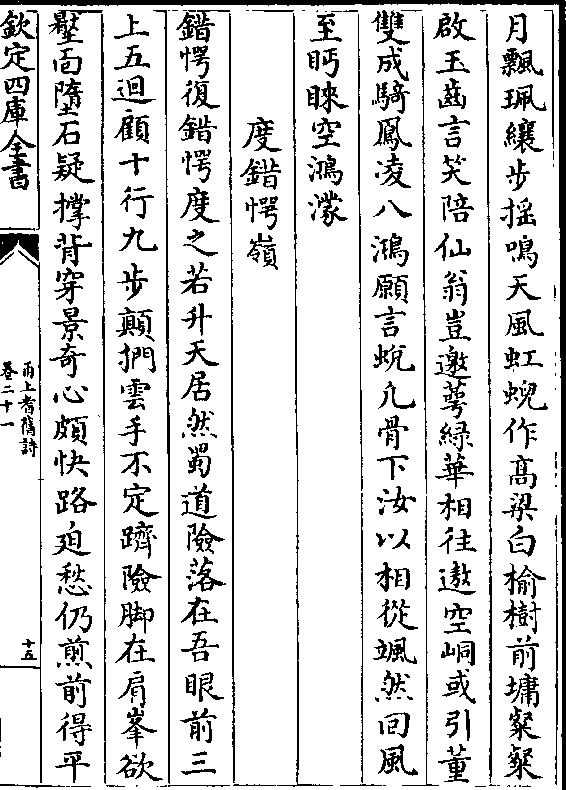 月飄珮纕步揺鳴天風虹蜺作髙梁白榆樹前墉粲粲
啟玉齒言笑陪仙翁豈邀萼緑華相往遨空峒或引董
雙成騎鳳凌八鴻願言蛻凡骨下汝以相從颯然回風
至眄睞空鴻濛
度錯愕嶺
錯愕復錯愕度之若升天居然蜀道險落在吾眼前三
上五迴顧十行九步顛捫雲手不定躋險脚在肩峯欲
壓面墮石疑撑背穿景奇心頗快路廹愁仍煎前得平
欽定四庫全書
甬上耆舊詩
卷二十一
十五